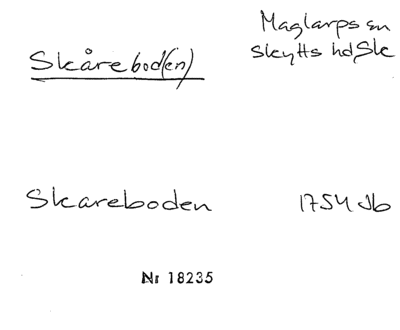 Maglarps sn
Skytts hd, Sk
Skårebod(en)
Skareboden 1754 Jb
Nr 18235